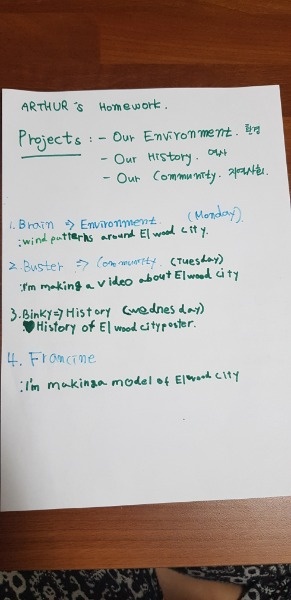 ARTHUR's Homework.
Projects : - Our Environment. 환경
- Our History. 역사
- Our Community. 지역사회.
1. Brain ⇒ Environment. (Monday)
: wind patterns around Elwood city.
2. Buster ⇒ Community. (Tuesday)
: I'm making a video about Elwood city
3. Binky ⇒ History (wednesday)
♥ History of Elwood city poster.
4. Francine
: I'm making a model of Elwood city